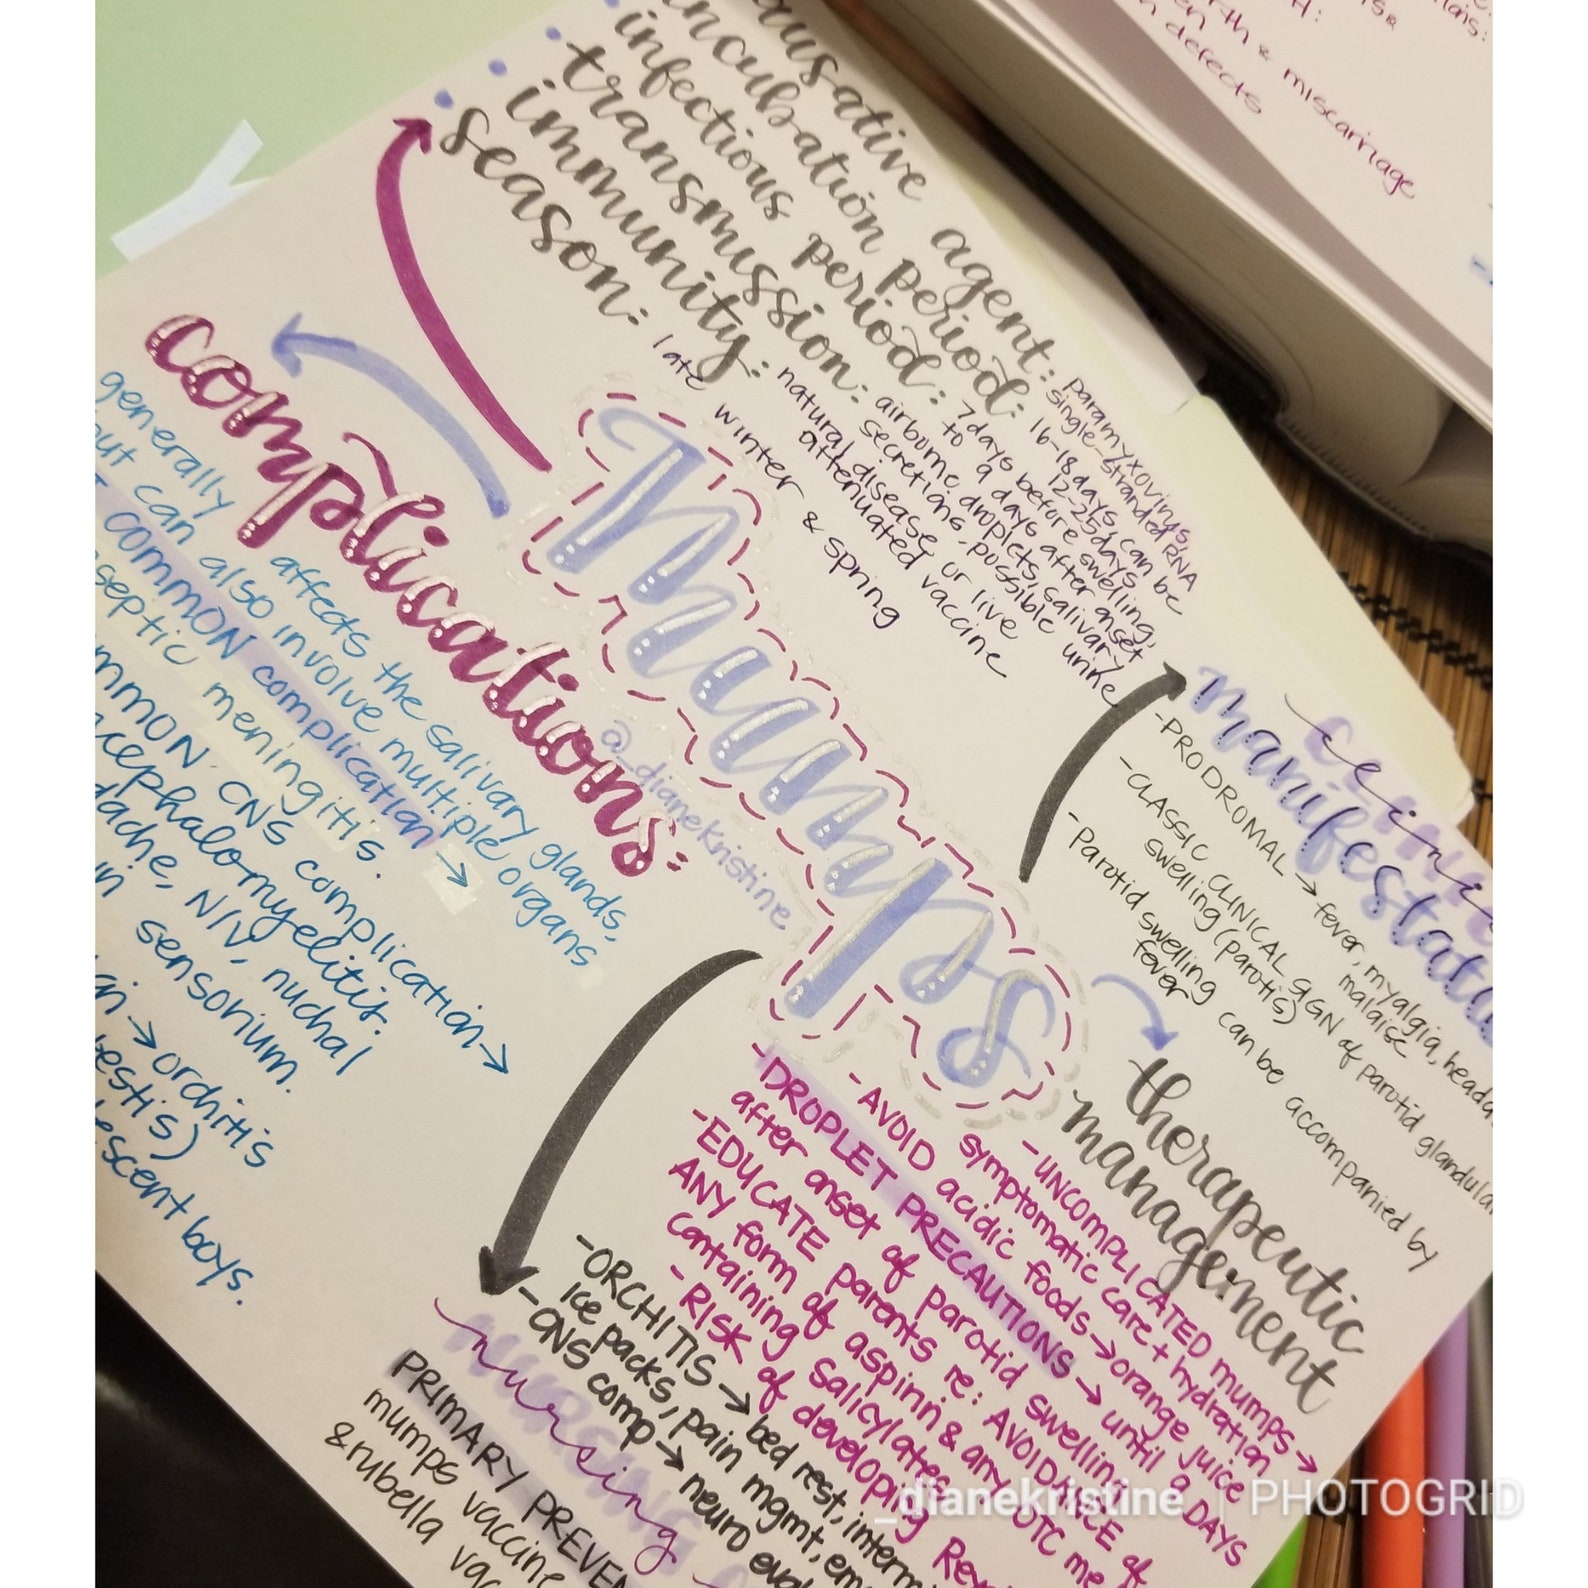 causative agent: paramyxovirus,
single-stranded RNA
incubation period: 16-18 days, can be
12-25 days
infectious period: 7 days before swelling,
to 9 days after onset
transmission: airborne droplets, salivary
secretions, possible urine
immunity: natural disease or live
attenuated vaccine
season: late winter & spring
mumps
@_dianekristine
complications:
generally affects the salivary glands,
but can also involve multiple organs
COMMON complication →
septic meningitis.
CNS complication →
cephalomyelitis.
dache, N/V, nuchal
in sensorium.
→ orchitis
testis)
escent boys.
clini
manifestati
- PRODROMAL → fever, myalgia, heada
malaise
- CLASSIC CLINICAL SIGN of parotid glandular
swelling (parotis)
- Parotid swelling can be accompanied by
fever
therapeutic
management
- UNCOMPLICATED mumps →
symptomatic care + hydration
- AVOID acidic foods → orange juice
- DROPLET PRECAUTIONS → until 9 DAYS
after onset of parotid swelling
- EDUCATE parents re: AVOIDANCE of
ANY form of aspirin & any OTC me
containing salicylates
- RISK of developing Rey
- ORCHITIS → bed rest, interm
ice packs, pain mgmt, em
- CNS comp → neuro eval
nursing
PRIMARY PREVEN
mumps vaccine
& rubella vac
rth & miscarriage
n defects
_dianekristine | PHOTOGRID